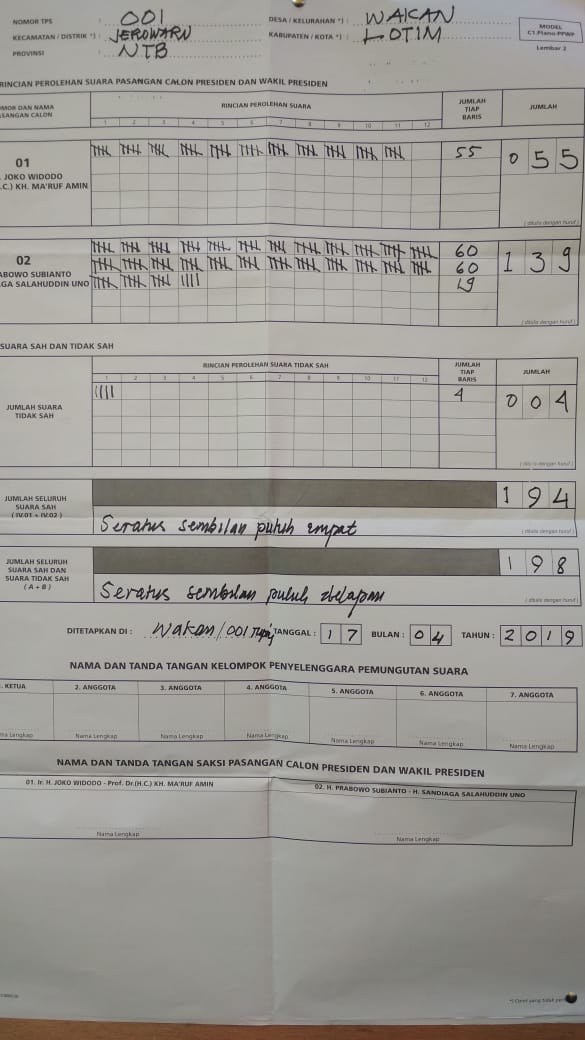 NOMOR TPS : 001 DESA / KELURAHAN *) : WAKAN
KECAMATAN / DISTRIK *) : JEROWARU KABUPATEN / KOTA *) : LOTIM
PROVINSI : NTB
MODEL
C1.Plano-PPWP
Lembar 2
RINCIAN PEROLEHAN SUARA PASANGAN CALON PRESIDEN DAN WAKIL PRESIDEN
MOR DAN NAMA
ASANGAN CALON
RINCIAN PEROLEHAN SUARA
1 2 3 4 5 6 7 8 9 10 11 12
JUMLAH
TIAP
BARIS
JUMLAH
01
JOKO WIDODO
.C.) KH. MA'RUF AMIN
55
055
( ditulis dengan huruf )
02
ABOWO SUBIANTO
GA SALAHUDDIN UNO
60
60
19
139
( ditulis dengan huruf )
SUARA SAH DAN TIDAK SAH
RINCIAN PEROLEHAN SUARA TIDAK SAH
1 2 3 4 5 6 7 8 9 10 11 12
JUMLAH
TIAP
BARIS
JUMLAH
JUMLAH SUARA
TIDAK SAH
4
004
( ditulis dengan huruf )
JUMLAH SELURUH
SUARA SAH
( IV.01 + IV.02 )
194
Seratus sembilan puluh empat
( ditulis dengan huruf )
JUMLAH SELURUH
SUARA SAH DAN
SUARA TIDAK SAH
( A + B )
198
Seratus sembilan puluh delapan
( ditulis dengan huruf )
DITETAPKAN DI : Wakan/001 TANGGAL : 17 BULAN : 04 TAHUN : 2019
NAMA DAN TANDA TANGAN KELOMPOK PENYELENGGARA PEMUNGUTAN SUARA
. KETUA 2. ANGGOTA 3. ANGGOTA 4. ANGGOTA 5. ANGGOTA 6. ANGGOTA 7. ANGGOTA
ma Lengkap Nama Lengkap Nama Lengkap Nama Lengkap Nama Lengkap Nama Lengkap Nama Lengkap
NAMA DAN TANDA TANGAN SAKSI PASANGAN CALON PRESIDEN DAN WAKIL PRESIDEN
01. Ir. H. JOKO WIDODO - Prof. Dr.(H.C.) KH. MA'RUF AMIN 02. H. PRABOWO SUBIANTO - H. SANDIAGA SALAHUDDIN UNO
Nama Lengkap Nama Lengkap
*) Coret yang tidak